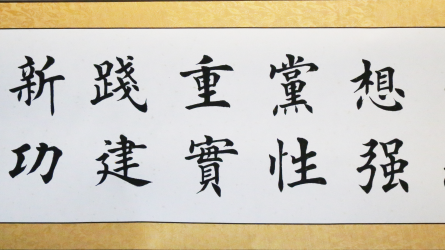 想强
黨性
重實
踐建
新功